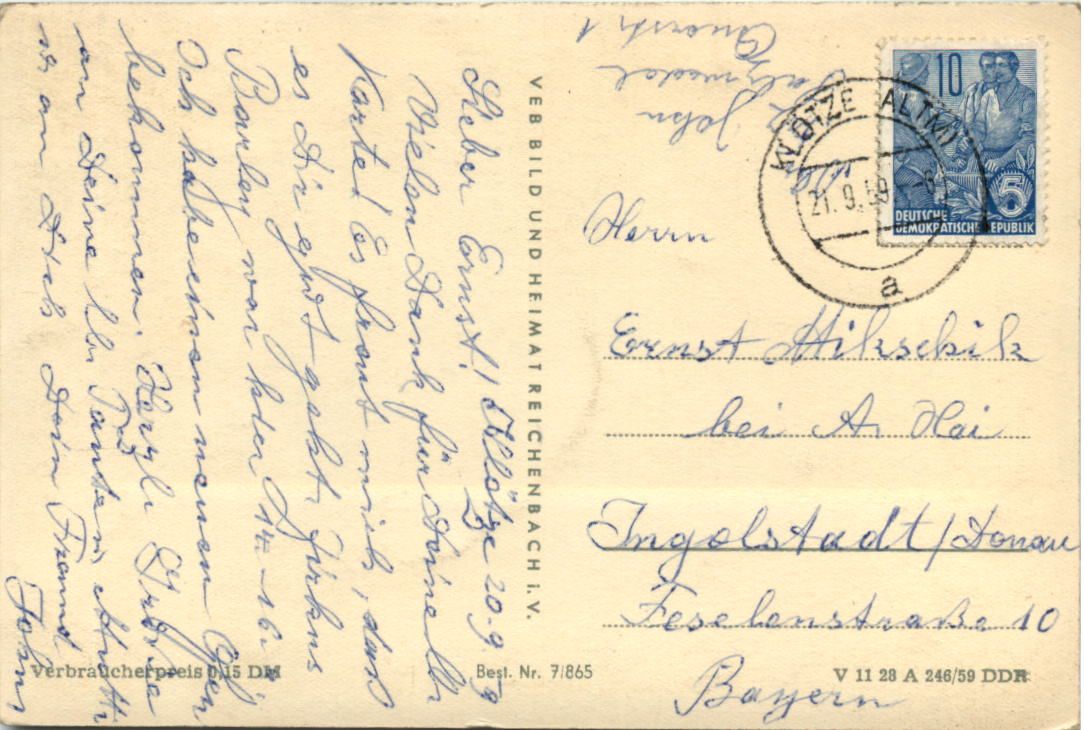 Lieber Ernst! Klötze 20.9.59
Vielen Dank für Deine lb.
Karte! Es freut mich, dass
es Dir gut geht.
war hier 14.-16.
Ich habe einen neuen
bekommen. Herzl. Grüße
an Deine lb.
u. an Dich Dein Freund
John
VEB BILD UND HEIMAT REICHENBACH i. V.
Verbraucherpreis 0,15 DM
Best. Nr. 7/865
V 11 28 A 246/59 DDR
John
Salzwedel
1
KLÖTZE ALTM
21.9.59
a
10
5
DEUTSCHE
DEMOKRATISCHE REPUBLIK
Herrn
Ernst Mikschik
bei A. Hai
Ingolstadt/Donau
Feselenstraße 10
Bayern